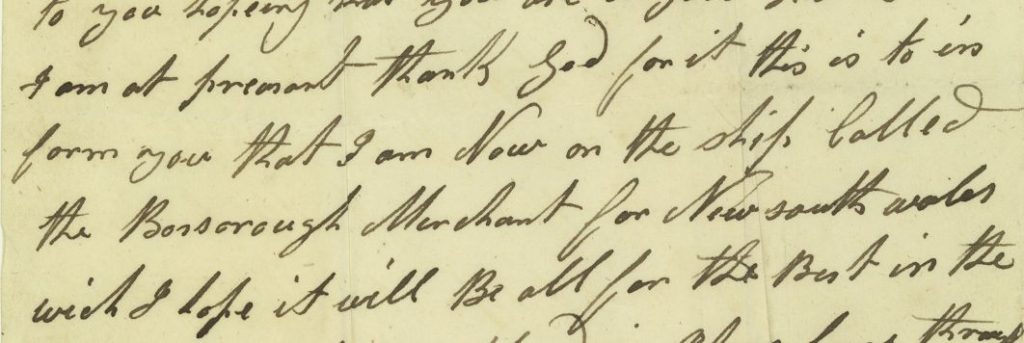 to you hoping that you are
I am at preasant thank God for it this is to in
form you that I am Now on the ship Called
the Bossorough Merchant for New south wales
wich I hope it will Be all for the Best in the
through